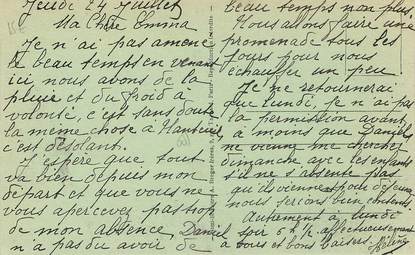 Jeudi 24 Juillet
Ma Chère Emma
Je n'ai pas amené
le beau temps en venant
ici nous avons de la
pluie et du froid à
volonté, c'est sans doute
la même chose à Nanteuil
c'est désolant.
J'espère que tout
va bien depuis mon
départ et que vous ne
vous apercevez pas trop
de mon absence. Daniel
n'a pas du avoir de
beau temps non plus
Nous allons faire une
promenade tous les
jours pour nous
réchauffer un peu.
Je ne retournerai
que lundi, je n'ai pas
la permission avant,
à moins que Daniel
ne vienne me chercher
dimanche avec les enfants
s'il ne s'absente pas
qu'ils viennent pour déjeuner
nous serions bien contents.
Autrement à lundi
soir 6h ½. affectueusement
à tous et bons baisers.